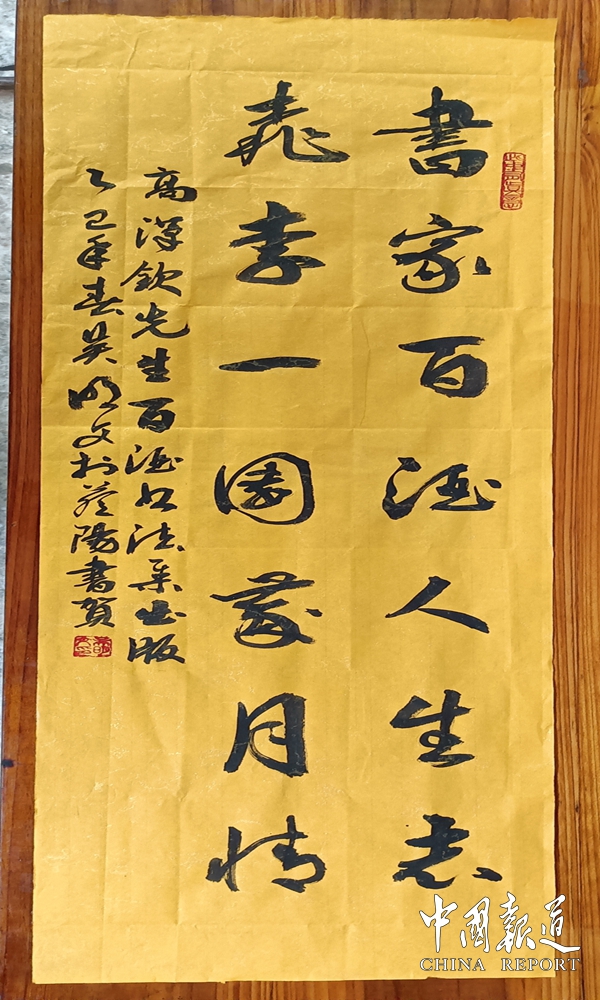 書家百酒人生志
桃李一園歲月情
高欽先生百酒书法集出版
乙巳年春吴明文於陽書贺
中國報道
CHINA REPORT